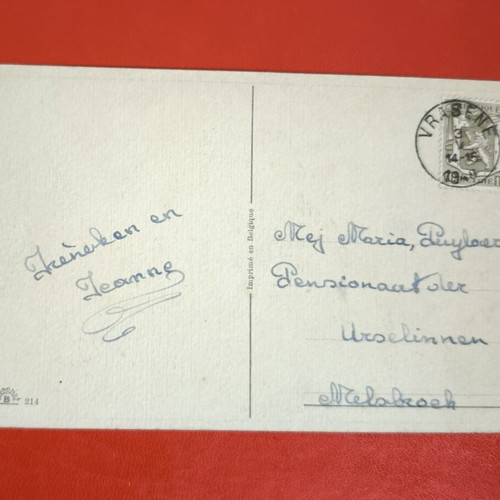 Irèneken en
Jeanne
Imprimé en Belgique
VRASENE
14-15
Mej Maria, Puylaer
Pensionaat der
Urselinnen
Melsbroek
B 214